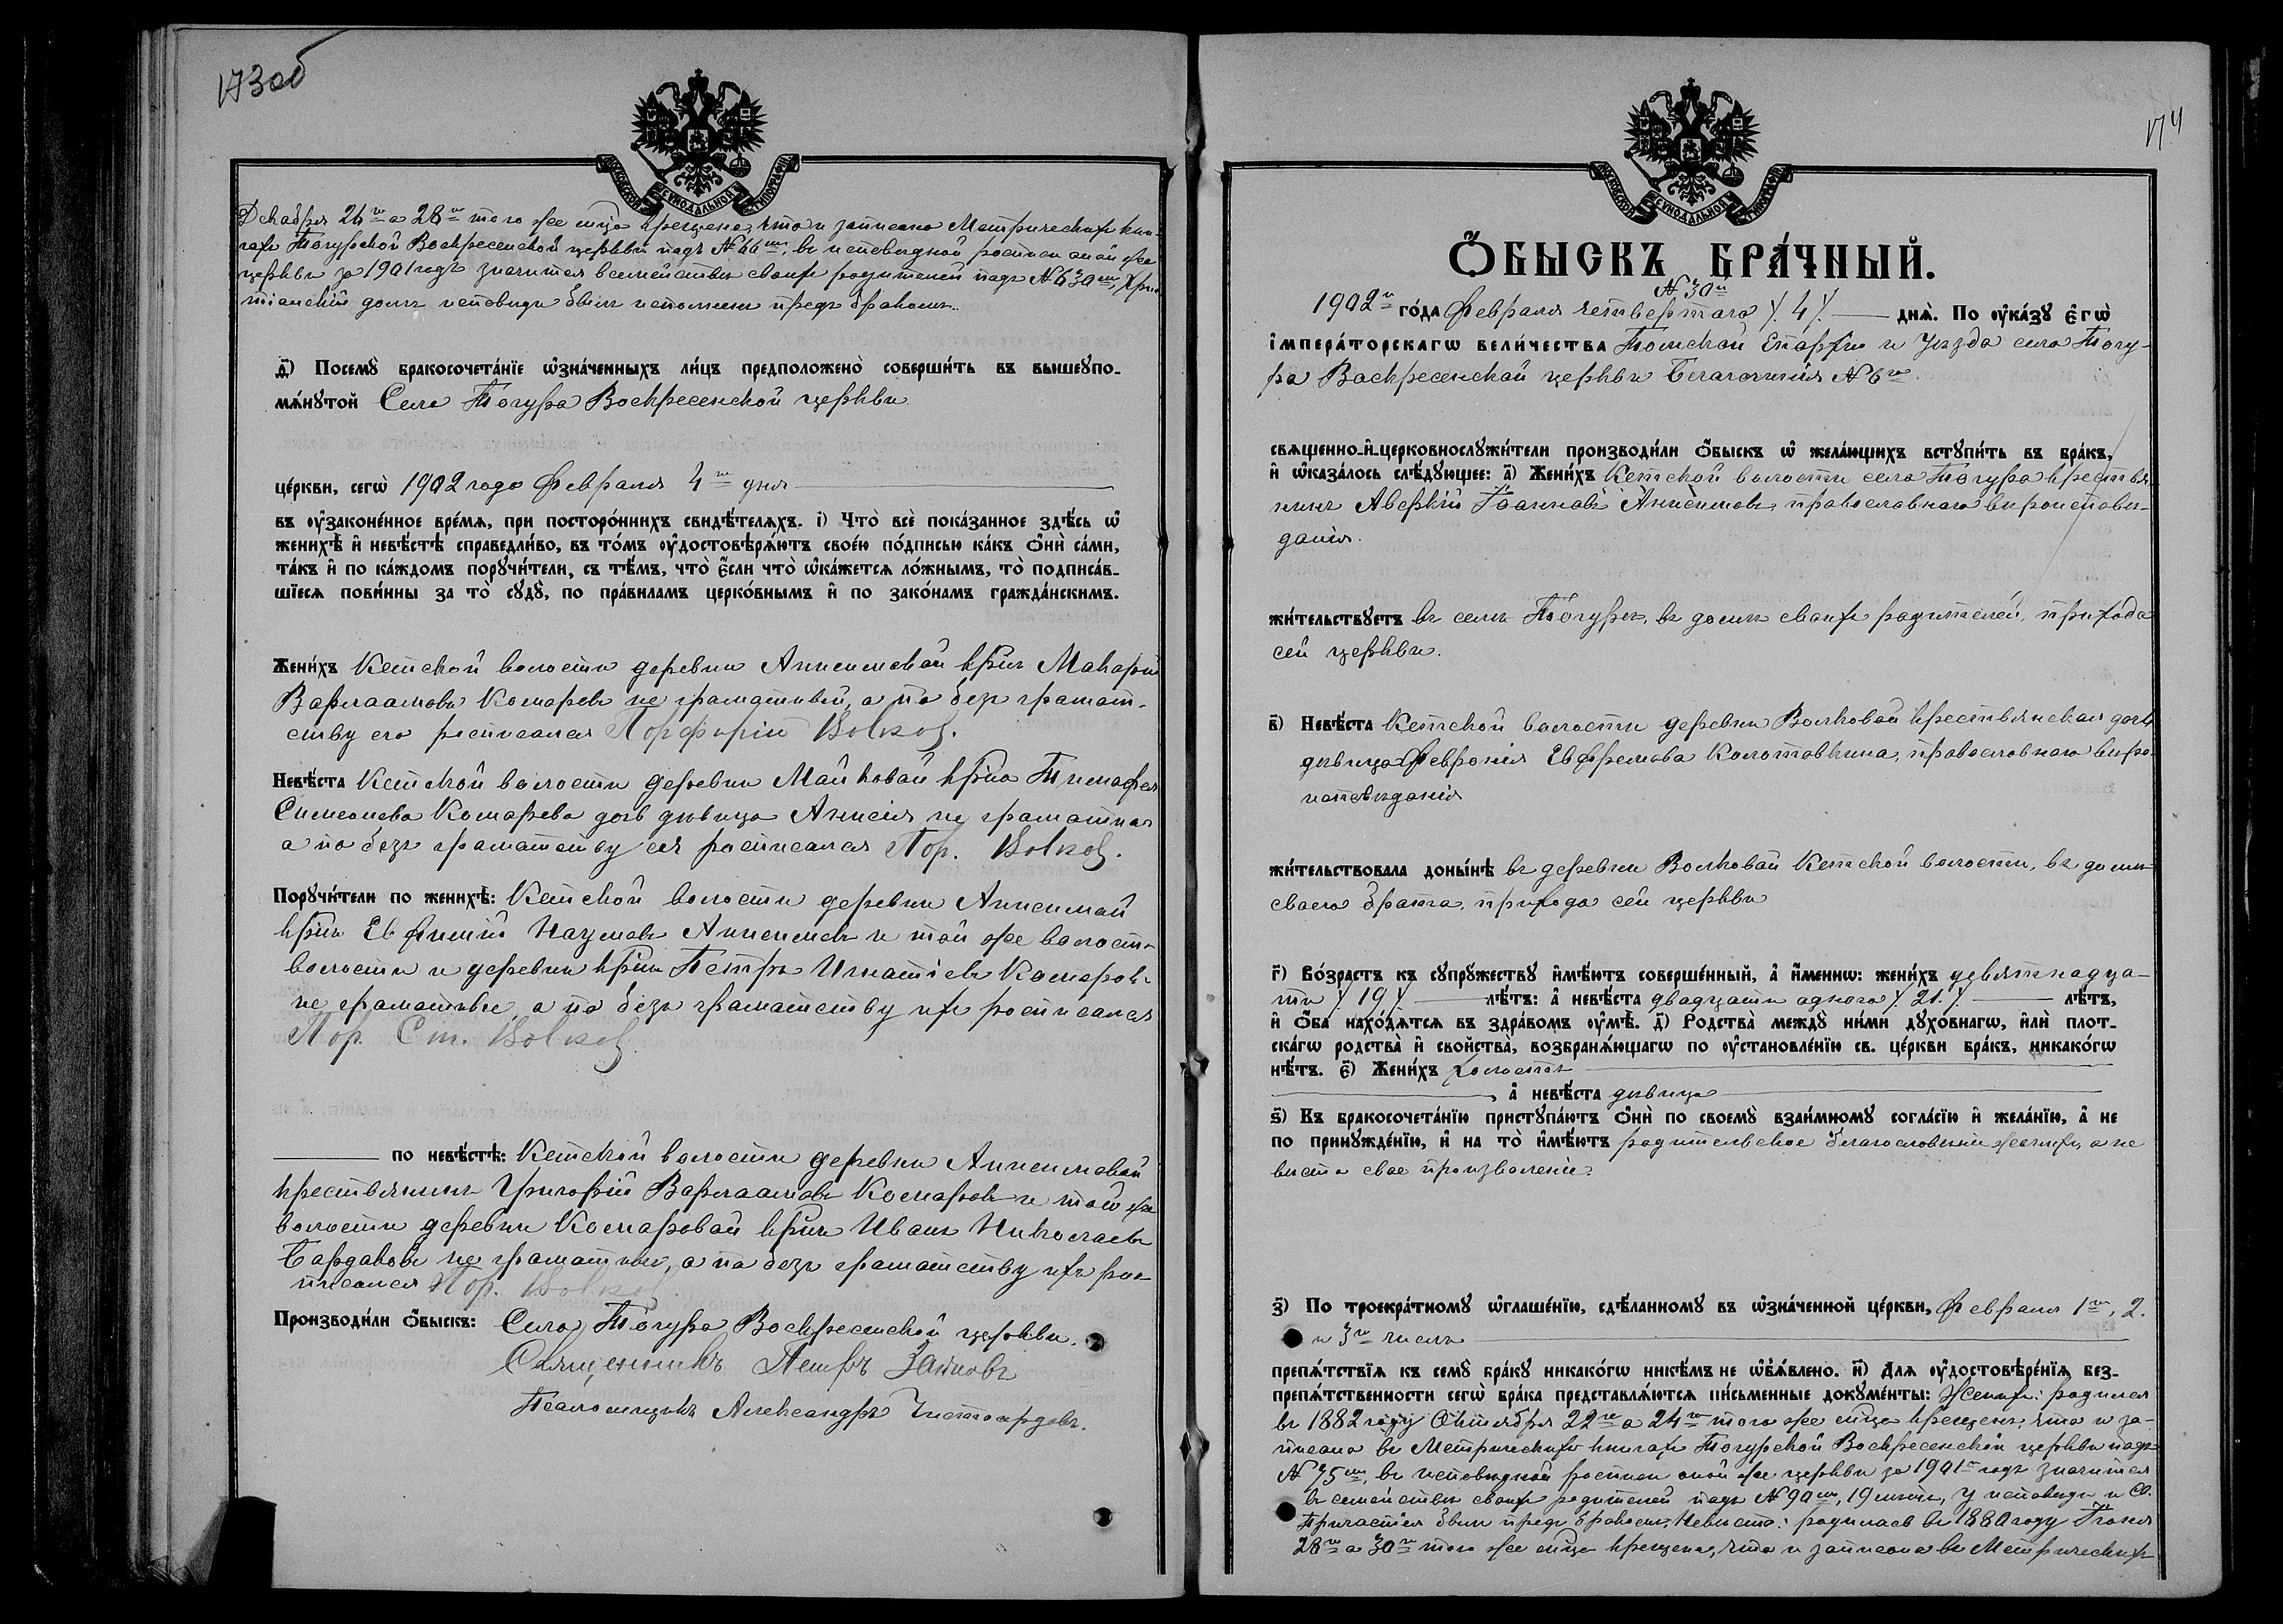 173об
МОСКОВСКОЙ СУНОДАЛЬНОЙ ТИПОГРАФІИ
Декабря 26го а 28го того же мца крещена, что и записано Метрических кни-
гах Тогурской Воскресенской церкви подъ № 66мъ, въ исповедной росписи оной же
церкви за 1901 годъ значится в семействе своих родителей подъ № 630мъ, Хри-
тіанскій долгъ исповеди былъ исполнен предъ бракомъ.
д҃) Посемꙋ̀ бракосочета́нїе ѡ҆зна́ченныхъ ли́цъ предположено̀ соверши́ть въ вышеꙋпо-
мѧ́нꙋтой Села Тогура Воскресенской церкви
це́ркви, сегѡ̀ 1902 года Февраля 4го дня
въ ᲂу҆законе́нное вре́мѧ, при посторо́ннихъ свидѣ́телѧхъ. і҃) Что̀ всѐ пока́занное здѣ́сь ѡ҆
женихѣ̀ и҆ невѣ́стѣ справедли́во, въ то́мъ ᲂу҆достовѣрѧ́ютъ свое́ю по́дписью ка́къ ѻ҆нѝ са́ми,
та́къ и҆ по ка́ждомъ порꙋчи́тели, съ тѣ́мъ, что̀ є҆́сли что̀ ѡ҆ка́жетсѧ ло́жнымъ, то̀ подписа́в-
шїесѧ пови́нны за то̀ сꙋдꙋ̀, по пра́виламъ церко́внымъ и҆ по зако́намъ гражда́нскимъ.
Жени́хъ Кетской волости деревни Анисимовой крнъ Макарій
Варлаамовъ Комаровъ не граматный, а по безъ грамат-
ству его росписался Порфирій Волков.
Невѣ́ста Кетской волости деревни Майковой крна Тимофея
Симеонова Комарова дочь девица Анисія не граматная
а по безъ граматству ея росписался Пор. Волков.
Порꙋчи́тели по женихѣ̀: Кетской волости деревни Анисимой
крнъ Евфимій Наумовъ Анисимовъ и той же волости
волости и деревни крнъ Петръ Игнатіевъ Комаровъ
не граматные, а по безъ граматству ихъ росписался
Пор. Ст. Волков
по невѣ́стѣ: Кетской волости деревни Анисимовой
крестьянинъ Григорій Варлаамовъ Комаровъ и той же
волости деревни Комаровой крнъ Иванъ Николаевъ
Бардаковъ не граматные, а по безъ граматству ихъ рос-
писался Пор. Волков
Производи́ли ѻ҆́быскъ: Села Тогура Воскресенской церкви.
Священникъ Петръ
Псаломщикъ Александръ Чистосердовъ.
174
МОСКОВСКОЙ СУНОДАЛЬНОЙ ТИПОГРАФІИ
Ѻ҆́БЫСКЪ БРА́ЧНЫЙ.
№ 30й
1902го го́да Февраля четвертаго /.4/. днѧ̀. По ᲂу҆ка́зꙋ є҆гѡ̀
і҆мпера́торскагѡ вели́чества Томской Епархіи и Уезда села Тогу-
ра Воскресенской церкви Благочинія № 6го
свѧщенно-и҆-церковнослꙋжи́тели производи́ли ѻ҆́быскъ ѡ҆ жела́ющихъ встꙋпи́ть въ бра́къ,
и҆ ѡ҆каза́лось слѣ́дꙋющее: а҃) Жени́хъ Кетской волости села Тогура крестья-
нинъ Аверкій Іоанновъ Анисимовъ, православнаго вероисповe-
данія.
жи́тельствꙋетъ въ селе Тогуре, въ доме своихъ родителей, прихода
сей церкви.
в҃) Невѣ́ста Кетской волости деревни Волковой крестьянская дочь
девица Феврония Евфремова Колотовкина, православнаго веро-
исповеданія
жи́тельствовала доны́нѣ въ деревни Волковой Кетской волости, въ доме
своего брата, прихода сей церкви
г҃) Во́зрастъ къ сꙋпрꙋ́жествꙋ и҆мѣ́ютъ соверше́нный, а҆ и҆́меннѡ: жени́хъ девятнадца-
ти /.19/. лѣ́тъ: а҆ невѣ́ста двадцати одного /.21./. лѣ́тъ,
и҆ ѻ҆́ба нахо́дѧтсѧ въ здра́вомъ ᲂу҆мѣ̀. д҃) Родства̀ междꙋ̀ ни́ми дꙋхо́внагѡ, и҆лѝ плот-
ска́гѡ родства̀ и҆ свойства̀, возбранѧ́ющагѡ по ᲂу҆становле́нїю св. це́ркви бра́къ, никако́гѡ
нѣ́тъ. є҃) Жени́хъ холостъ
, а҆ невѣ́ста девица
ѕ҃) Къ бракосочета́нїю пристꙋпа́ютъ ѻ҆нѝ по своемꙋ̀ взаи́мномꙋ согла́сїю и҆ жела́нїю, а҆ не
по принꙋжде́нїю, и҆ на то̀ и҆мѣ́ютъ родительское благословеніе женихъ, а не
веста свое произволеніе.
з҃) По троекра́тномꙋ ѡ҆глаше́нїю, сдѣ́ланномꙋ въ ѡ҆зна́ченной це́ркви, Февраля 1го, 2.
и 3го числъ
препѧ́тствїѧ къ семꙋ̀ бра́кꙋ никако́гѡ никѣ́мъ не ѡ҆б̾ѧ́влено. и҃) Длѧ ᲂу҆достовѣре́нїѧ без-
препѧ́тственности сегѡ̀ бра́ка представлѧ́ютсѧ пи́сьменные докꙋме́нты: Женихъ: родился
въ 1882 году Октября 22го а 24го того же мца крещенъ, что и за-
писано въ Метрическихъ книгахъ Тогурской Воскресенской церкви подъ
№ 75мъ, въ исповедной росписи оной же церкви за 1901й годъ значится
въ семействе своихъ родителей подъ № 90мъ, 19 летъ, у исповеди и Св.
Причастія былъ предъ бракомъ; Невеста: родилась въ 1880 году Іюня
28го а 30го того же мца крещена, что и записано въ Метрическихъ